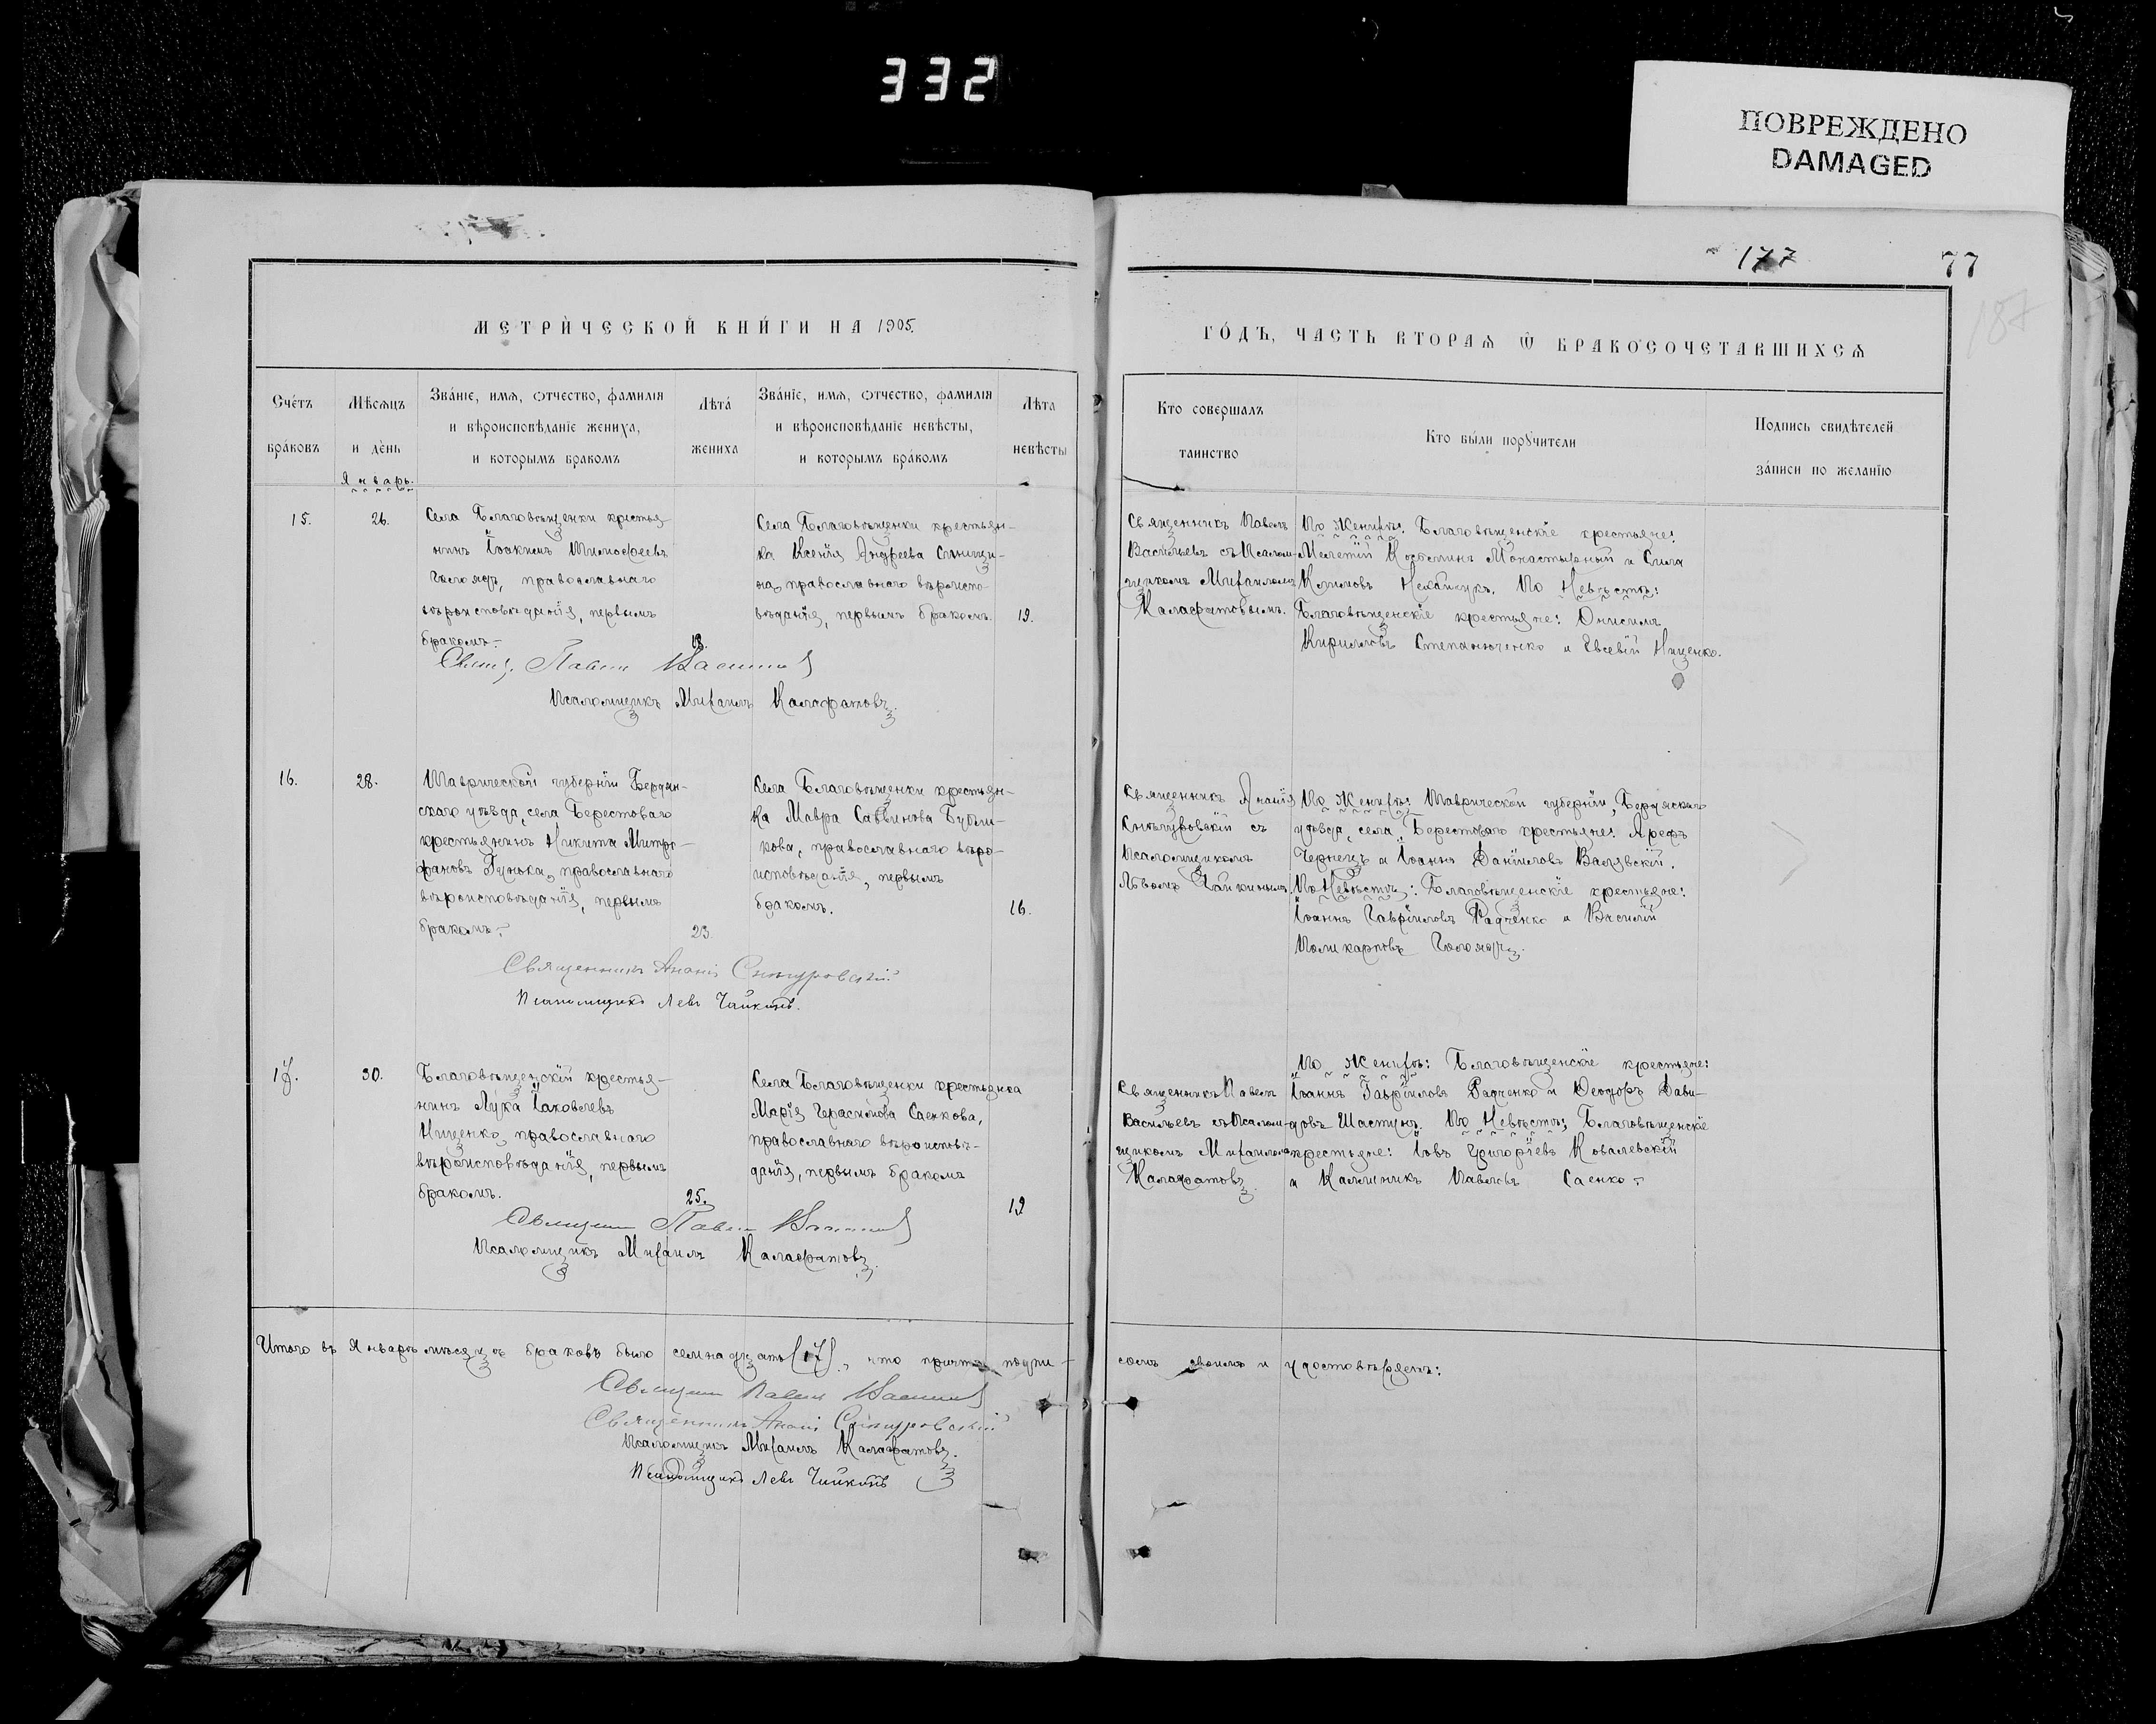 332
ПОВРЕЖДЕНО
DAMAGED
177
77
187
МЕТРИЧЕСКОЙ КНИГИ НА 1905.
ГОДЪ, ЧАСТЬ ВТОРАѦ Ѿ БРАКОСОЧЕТАВШИХСѦ
Счетъ браковъ
Мѣсѧцъ и день
Званіе, имѧ, ѿчество, фамилія и вѣроисповѣданіе жениха, и которымъ бракомъ
Лѣта жениха
Званіе, имѧ, ѿчество, фамилія и вѣроисповѣданіе невѣсты, и которымъ бракомъ
Лѣта невѣсты
Кто совершалъ таинство
Кто были порꙋчители
Подпись свидѣтелей записи по желанію
Январь.
15.
26.
Села Благовѣщенки крестья-
нинъ Іоакимъ Тимофеевъ
Голоядъ, православнаго
вѣроисповѣданія, первымъ
бракомъ.-
18.
Села Благовѣщенки крестьян-
ка Ксенія Андреева
православнаго вѣроиспо-
вѣданія, первымъ бракомъ.
19.
Священникъ Павелъ
Васильевъ съ Псалом-
щикомъ Михаиломъ
Калафатовымъ.
По Женихѣ: Благовѣщенскіе крестьяне:
Мелетій Косьминъ Монастырный и Сила
Климовъ По Невѣстѣ:
Благовѣщенскіе крестьяне: Онисимъ
Кирилловъ Степанюченко и Евсевій Нищенко.
Свящ. Павелъ Васильевъ
Псаломщикъ Михаилъ Калафатовъ.
16.
28.
Таврической губерніи Бердян-
скаго уѣзда, села Берестоваго
крестьянинъ Никита Митро-
фановъ Гунька, православнаго
вѣроисповѣданія, первымъ
бракомъ.-
23.
Села Благовѣщенки крестьян-
ка Мавра Саввинова Бубли-
кова, православнаго вѣро-
исповѣданія, первымъ
бракомъ.
16.
Священникъ Ананія
Снѣгуровскій съ
Псаломщикомъ
Львомъ Чайкинымъ
По Женихѣ: Таврической губерніи, Бердянскаго
уѣзда, села Берестоваго крестьяне: Арефъ
Чернецъ и Іоаннъ Даніиловъ Валявскій.
По Невѣстѣ: Благовѣщенскіе крестьяне:
Іоаннъ Гавріиловъ Радченко и Василій
Поликарповъ Голоядъ.
Священникъ Ананія Снѣгуровскій
Псаломщикъ Левъ Чайкинъ.
17.
30.
Благовѣщенскій крестья-
нинъ Лука Іаковлевъ
Нищенко, православнаго
вѣроисповѣданія, первымъ
бракомъ.
25.
Села Благовѣщенки крестьянка
Марія Герасимова Саенкова,
православнаго вѣроисповѣ-
данія, первымъ бракомъ
19
Священникъ Павелъ
Васильевъ съ Псалом-
щикомъ Михаиломъ
Калафатовъ.
По Женихѣ: Благовѣщенскіе крестьяне:
Іоаннъ Гавріиловъ Радченко и Ѳеодоръ Дави-
довъ Шастунъ. По Невѣстѣ: Благовѣщенскіе
крестьяне: Іовъ Григоріевъ Ковалевскій
и Каллиникъ Павловъ Саенко.-
Священникъ Павелъ Васильевъ
Псаломщикъ Михаилъ Калафатовъ.
Итого въ Январѣ мѣсяцѣ браковъ было семнадцать (17), что причтъ подпи-
сомъ своимъ и удостовѣряемъ:
Священникъ Павелъ Васильевъ
Священникъ Ананія Снѣгуровскій
Псаломщикъ Михаилъ Калафатовъ.
Псаломщикъ Левъ Чайкинъ